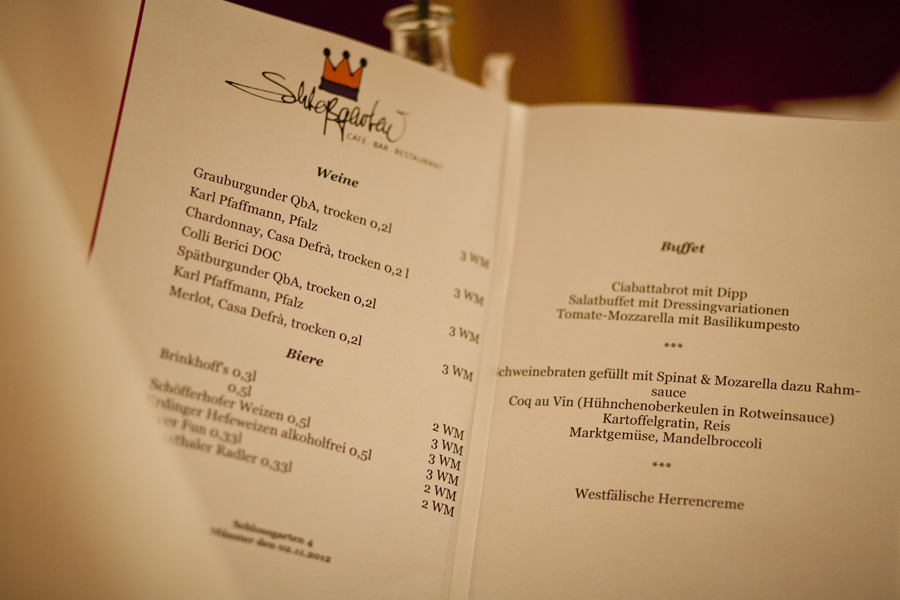 Schloßgarten
CAFE BAR RESTAURANT
Weine
Grauburgunder QbA, trocken 0,2l
Karl Pfaffmann, Pfalz
3 WM
Chardonnay, Casa Defrà, trocken 0,2 l
Colli Berici DOC
3 WM
Spätburgunder QbA, trocken 0,2l
Karl Pfaffmann, Pfalz
3 WM
Merlot, Casa Defrà, trocken 0,2l
3 WM
Biere
Brinkhoff's 0,3l
2 WM
0,5l
3 WM
Schöfferhofer Weizen 0,5l
3 WM
Erdinger Hefeweizen alkoholfrei 0,5l
3 WM
Fun 0,33l
2 WM
Radler 0,33l
2 WM
Schlossgarten 4
Münster den 02.11.2012
Buffet
Ciabattabrot mit Dipp
Salatbuffet mit Dressingvariationen
Tomate-Mozzarella mit Basilikumpesto
***
chweinebraten gefüllt mit Spinat & Mozarella dazu Rahm-
sauce
Coq au Vin (Hühnchenoberkeulen in Rotweinsauce)
Kartoffelgratin, Reis
Marktgemüse, Mandelbroccoli
***
Westfälische Herrencreme